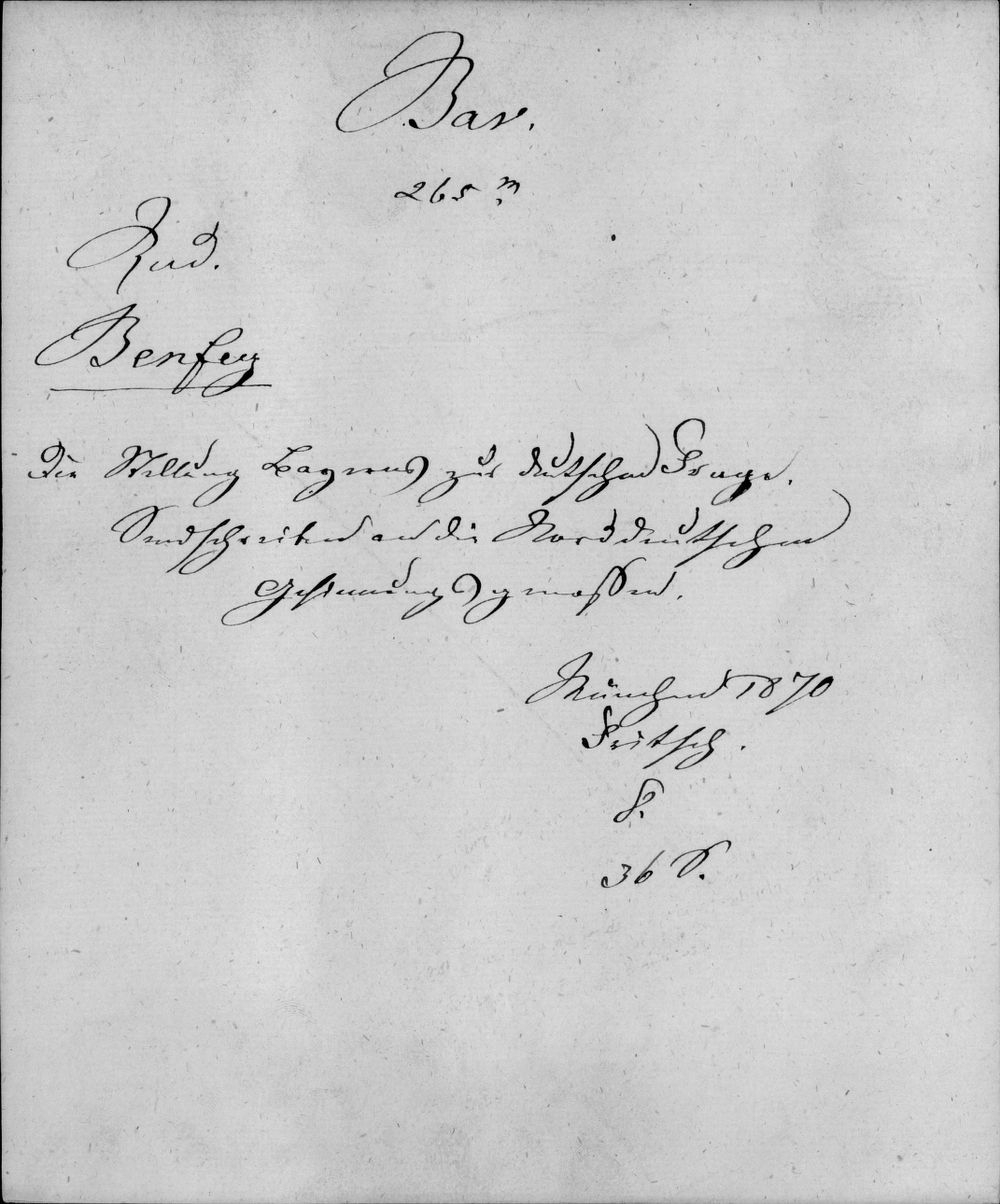 Bav.
265 m
Rud.
Benfey
Die Stellung Bayerns zur deutschen Frage.
Sendschreiben an die Norddeutschen
Gesinnungsgenossen.
München 1870
Fritsch.
8.
36 S.